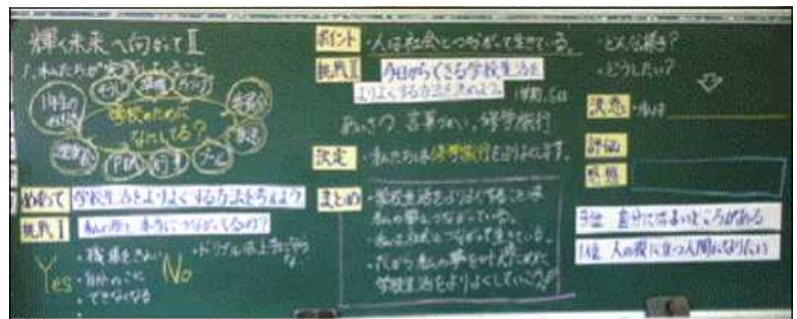 輝く未来へ向かってⅡ
1. 私たちが
学校のために
なにしてる?
1年生の
お世話
そうじ
PTA
行事
プール
めあて 学校生活をよりよくする方法を考えよう
挑戦Ⅰ 私の夢と本当につながってるの?
Yes
No
・自分のこと
・できなくなる
ポイント ・人は社会とつながって生きている。
挑戦Ⅱ 今日からできる学校生活を
よりよくする方法をきめよう。
あいさつ 言葉づかい 修学旅行
決定 ・私たちは修学旅行をよりよくします。
まとめ ・学校生活をよりよくすることは
私の夢とつながっている。
・私は社会とつながって生きている。
・だから私の夢を叶えるために
学校生活をよりよくしていこう!
・どんな様子?
・どうしたい?
決意 ・私は
評価
感想
5位 自分にはよいところがある
1位 人の役に立つ人間になりたい